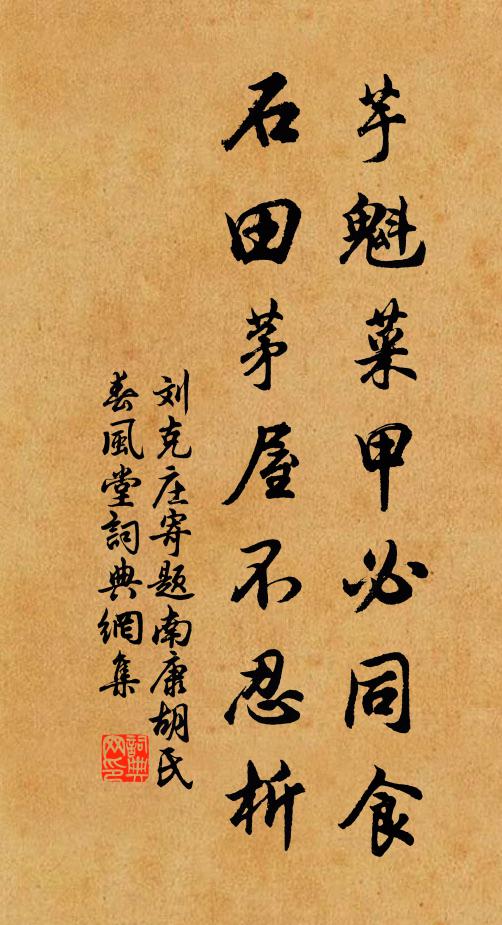 芋魁菜甲必同食
石田茅屋不忍析
刘克庄寄题南康胡氏
春風堂詞典網集
詞典
网印